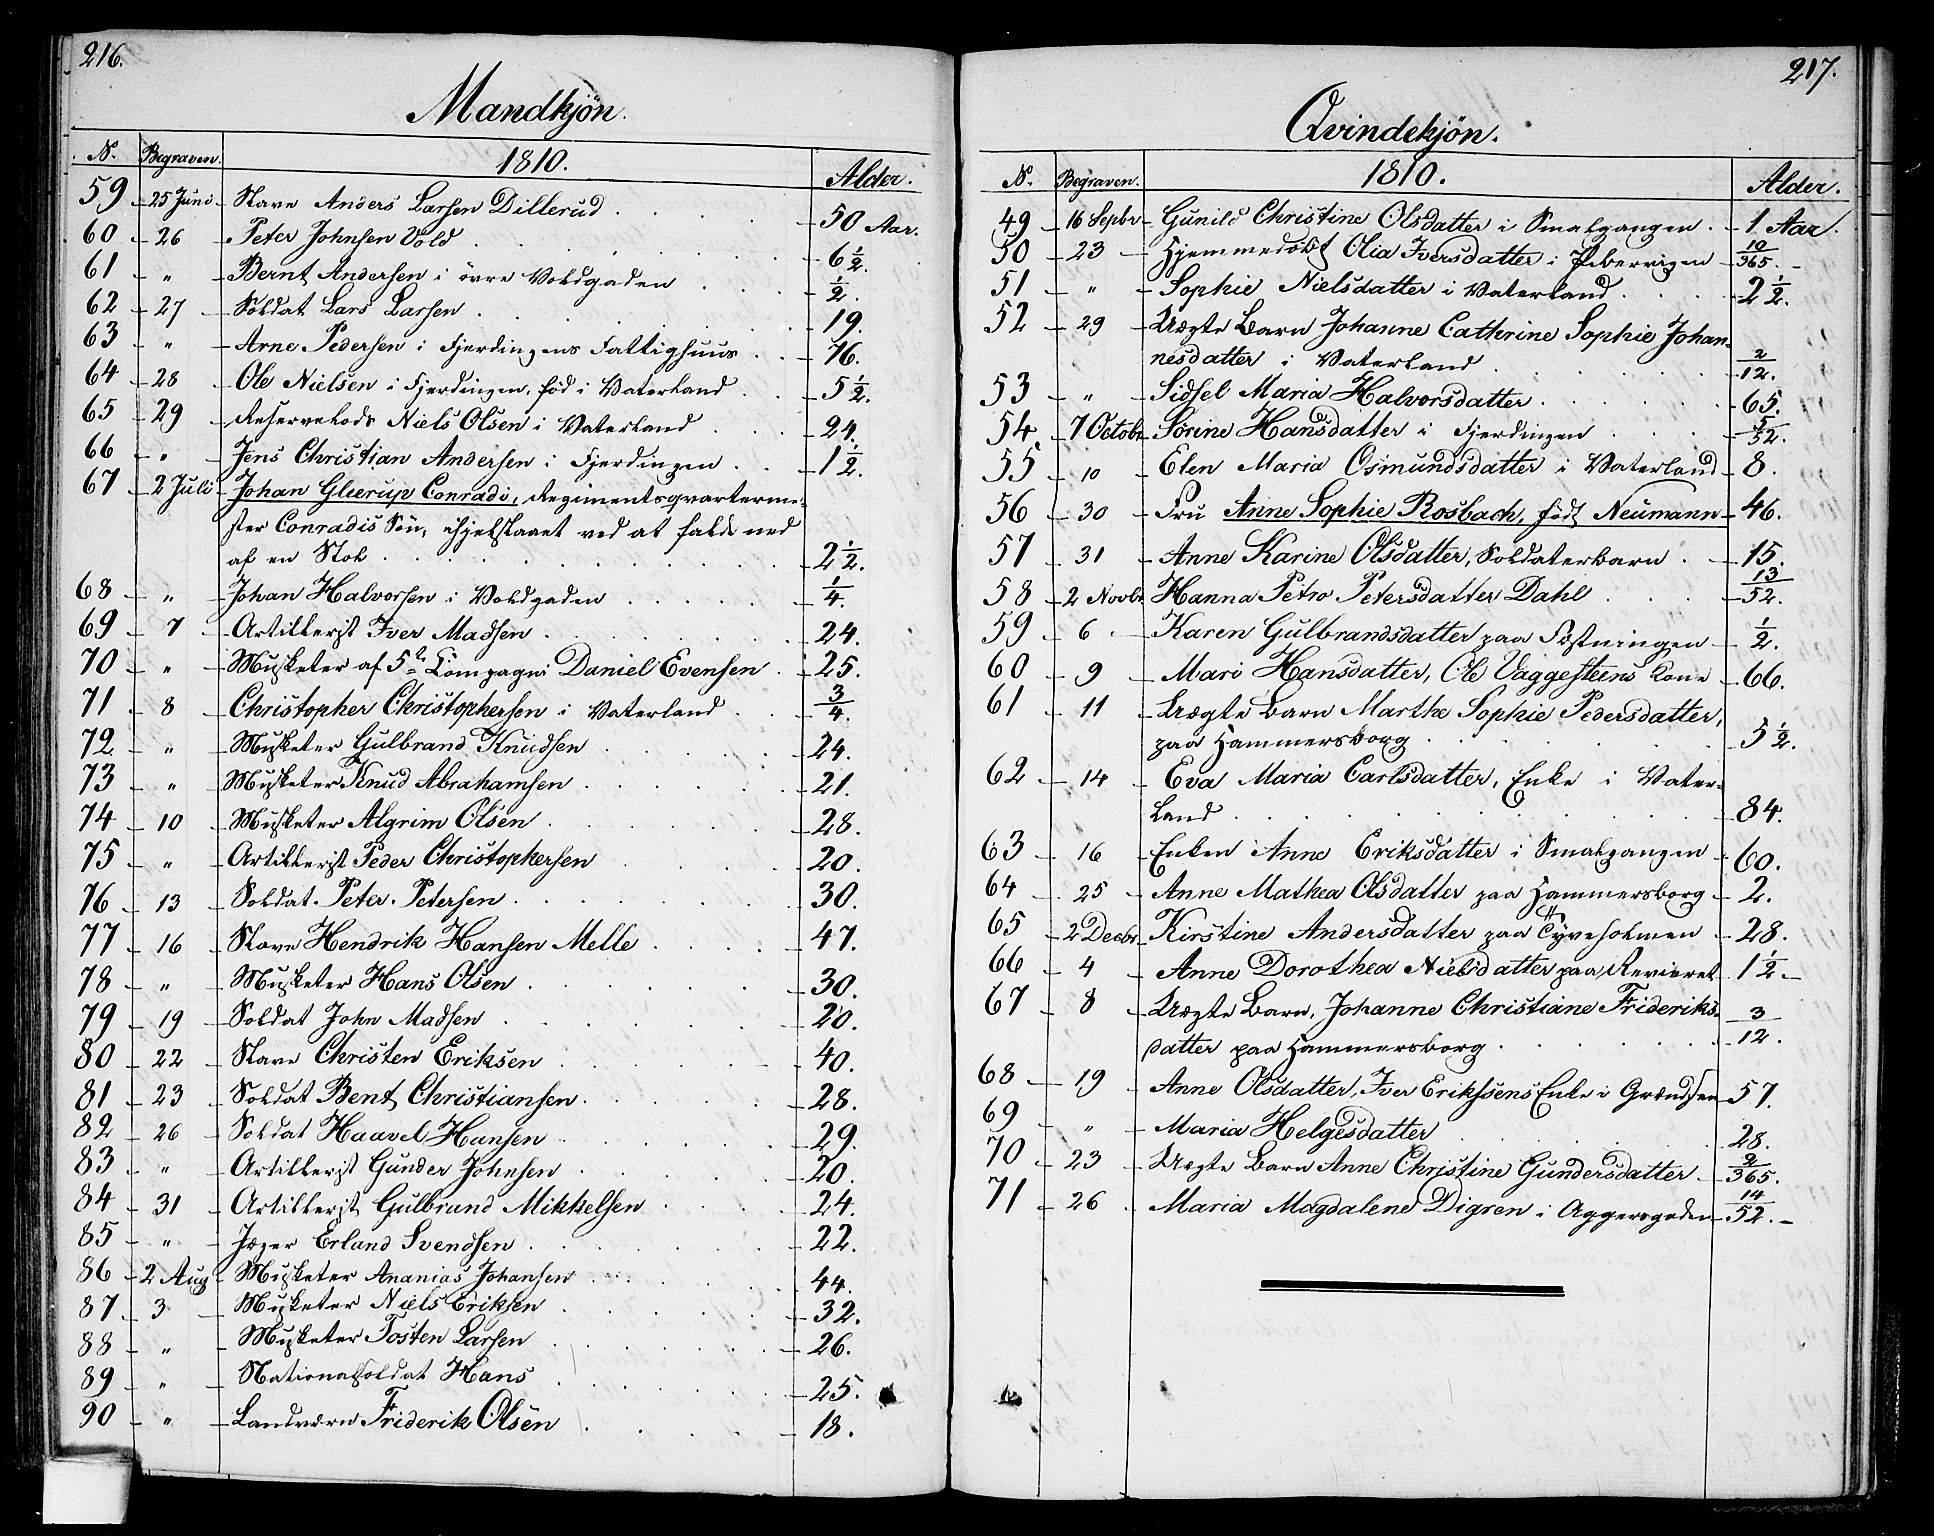 216.
Mandkjön.
N. Begraven. 1810. Alder.
59 25 Juni Slave Anders Larsen Dillerud 50 Aar.
60 26 Peter Johnsen Vold 6½.
61 " Bernt Andersen i övre Voldgaden ½.
62 27 Soldat Lars Larsen 19.
63 " Arne Pedersen i Fjerdingens Fattighuus 76.
64 28 Ole Nielsen i Fjerdingen, föd i Vaterland 5½.
65 29 Reservekods Niels Olsen i Vaterland 24.
66 " Jens Christian Andersen i Fjerdingen 1½.
67 2 Juli Johan Gleerup Conradi, Regimentsqvarterme-
ster Conradis Sön, ihjelslaaet ved at falde ned
af en Stol 2½.
68 " Johan Halvorsen i Voldgaden ¼.
69 7 Artillerist Iver Madsen 24.
70 " Musketer af 5te Compagni Daniel Evensen 25.
71 8 Christopher Christophersen i Vaterland ¾.
72 " Musketer Gulbrand Knudsen 24.
73 " Musketer Knud Abrahamsen 21.
74 10 Musketer Algrim Olsen 28.
75 " Artillerist Peder Christophersen 20.
76 13 Soldat Peter Petersen 30.
77 16 Slave Hendrik Hansen Melle 47.
78 " Musketer Hans Olsen 30.
79 19 Soldat John Madsen 20.
80 22 Slave Christen Eriksen 40.
81 23 Soldat Bent Christiansen 28.
82 26 Soldat Haavel Hansen 29.
83 " Artillerist Gunder Johnsen 20.
84 31 Artillerist Gulbrand Mikkelsen 24.
85 " Jæger Erland Svendsen 22.
86 2 Aug Musketer Ananias Johansen 44.
87 3 Musketer Niels Eriksen 32.
88 " Musketer Tosten Larsen 26.
89 " Nationalsoldat Hans 25.
90 " Landværn Friderik Olsen 18.
217.
Qvindekjön.
N. Begraven. 1810. Alder.
49 16 Septbr Gunild Christine Olsdatter i Smalgangen 1 Aar.
50 23 Hjemmedöbt Olia Iversdatter i Pibervigen 10/365.
51 " Sophie Nielsdatter i Vaterland 2½.
52 29 Uægte Barn Johanne Cathrine Sophie Johan-
nesdatter i Vaterland 2/12.
53 " Sidsel Maria Halvorsdatter 65.
54 7 Octobr Sörine Hansdatter i Fjerdingen 3/52.
55 10 Elen Maria Osmundsdatter i Vaterland 8.
56 30 Fru Anne Sophie Rosbach, født Neumann 46.
57 31 Anne Karine Olsdatter, Soldaterbarn 15.
58 2 Novbr Hanna Petro Petersdatter Dahl 13/52.
59 6 Karen Gulbrandsdatter paa Fæstningen ½.
60 9 Mari Hansdatter, Ole Vaggesteens Kone 66.
61 11 Uægte Barn Marthe Sophie Pedersdatter,
paa Hammersborg 5½.
62 14 Eva Maria Carlsdatter, Enke i Vater-
land 84.
63 16 Enken Anne Eriksdatter i Smalgangen 60.
64 25 Anne Mathea Olsdatter paa Hammersborg 2.
65 2 Decbr Kirstine Andersdatter paa Tyveholmen 28.
66 4 Anne Dorothea Nielsdatter paa Revieret 1½
67 8 Uægte Barn, Johanne Christiane Frideriks-
datter paa Hammersborg 3/12.
68 19 Anne Olsdatter, Iver Eriksens Enke i Grændsen 57.
69 " Maria Helgesdatter 28.
70 23 Uægte Barn Anne Christine Gundersdatter 2/365.
71 26 Maria Magdalene Digren i Aggersgaden 14/52.